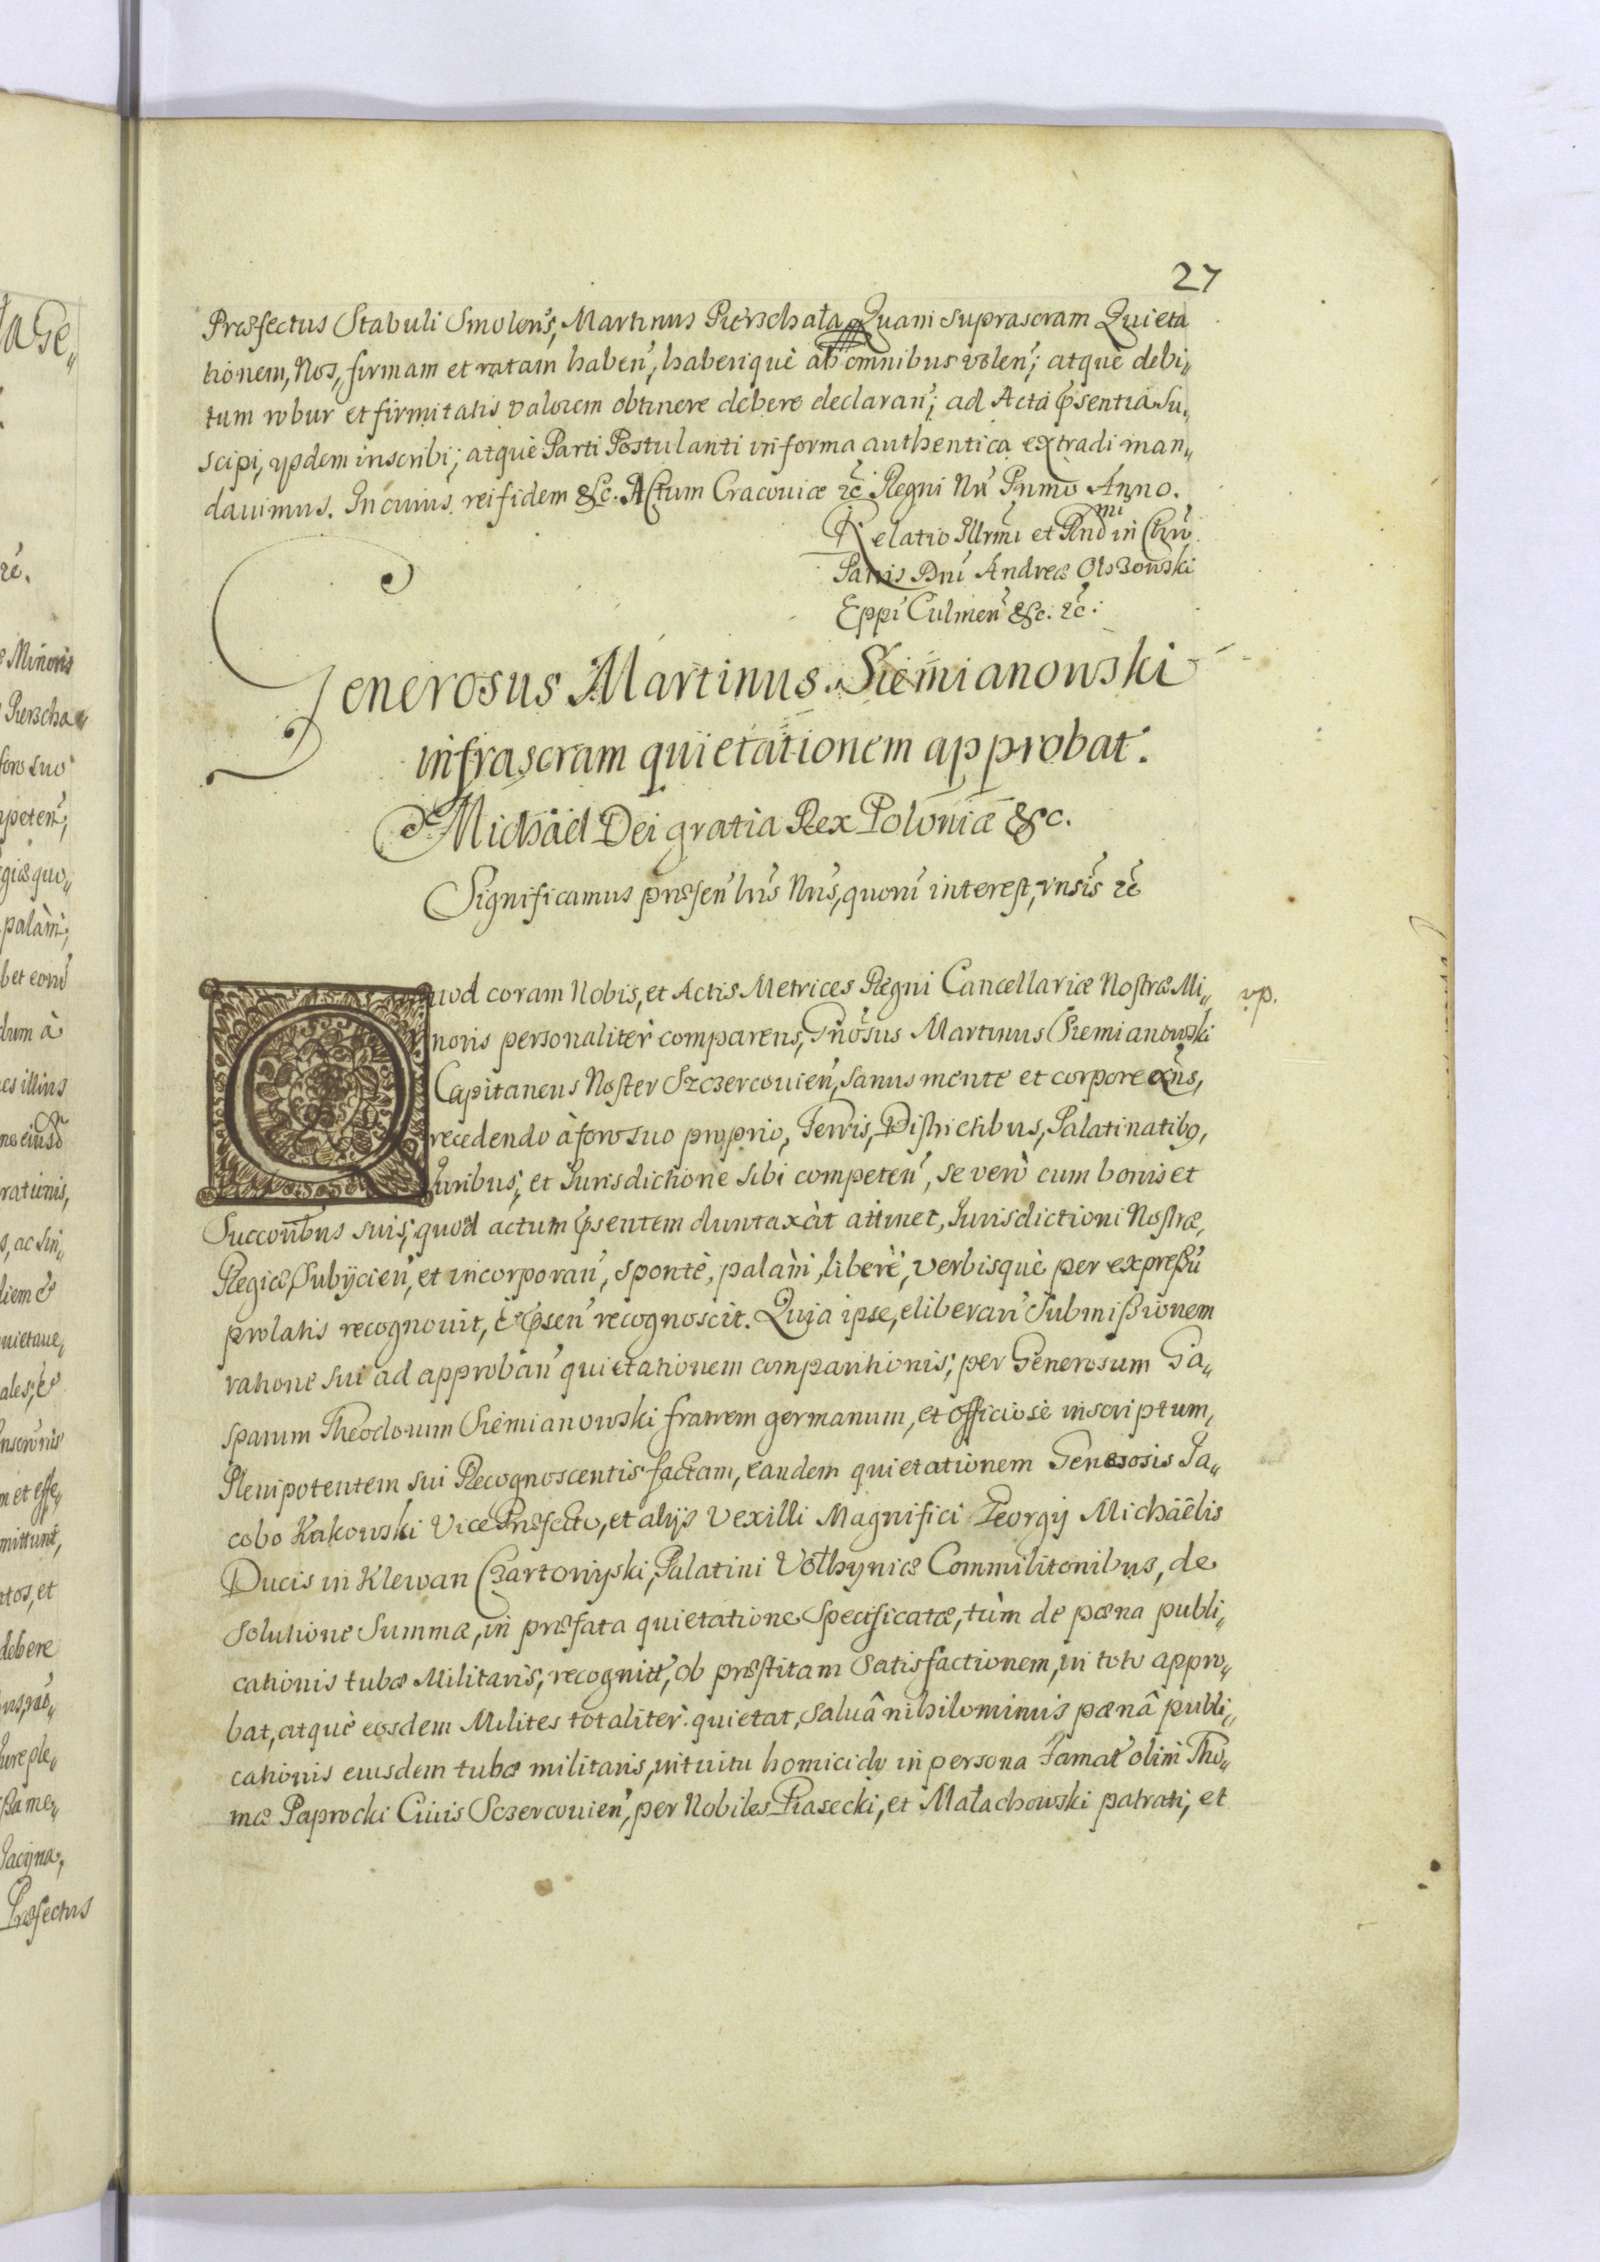 27
Præfectus Stabuli Smolen̄s, Martinus Pierzchała Quam suprascram Quieta
tionem, Nos, firmam et ratam haben̄, haberiquè ab omnibus volen̄; atquè debi„
tum robur et firmitatis valorem obtinere debere declaran̄; ad Acta p̄sentia su„
scipi, ijsdem inscribi; atquè Parti Postulanti in forma authentica extradi man„
davimus. In cuius rei fidem &c. Actum Cracoviæ &c̄ Regni N̄ri Primo Anno.
Relatio Illrm̄i et R̄ndmi in Chrō
Patris Dn̄i Andreæ Olszowski
Eppi Culmen̄ &c. &c̄.
Generosus Martinus Siemianowski
infrascram quietationem approbat.
Michäel Dei gratia Rex Poloniæ &c.
Significamus præsen̄ l̄ris N̄ris, quorū interest, vn̄sis &c̄
Quod coram Nobis, et Actis Metrices Regni Cancellariæ Nostræ Mi„
vp.
noris personalitèr comparens, Gn̄osus Martinus Siemianowski
Capitaneus Noster Szczercovien̄, sanus mente et corpore exn̄s,
recedendo à foro suo proprio, Terris, Districtibus, Palatinatibq,
Iuribus, et Iurisdictione sibi competen̄, se verò cum bonis et
Succorībus suis, quoad actum p̄sentem duntaxàt attinet, Iurisdictioni Nostræ,
Regiæ, Subijcien̄, et incorporan̄, spontè, palàm, liberè, verbisquè per expreßū
prolatis recognovit, & p̄sen̄ recognoscit. Quia ipse, eliberan̄ Submißionem
ratione sui ad approban̄ quietationem comparitionis; per Generosum Ga„
sparum Theodorum Siemianowski fratrem germanum, et officiosè inscriptum,
Plenipotentem sui Recognoscentis factam, eandem quietationem Generosis Ia„
cobo Kakowski Vice Præfecto, et alijs Vexilli Magnifici Georgij Michäelis
Ducis in Klewan Czartoryski, Palatini Volhyniæ Commilitonibus, de
solutione Summæ, in præfata quietatione Specificatæ, tùm de pæna publi„
cationis tubæ Militaris, recognitt̄, ob præstitam Satisfactionem, in toto appro„
bat, atquè eosdem Milites totalitèr quietat, salvâ nihilominus pænâ publi„
cationis eiusdem tubæ militaris, intuitu homicidij in persona Famat̄ olim Tho„
mæ Paprocki Civis Sczercovien̄, per Nobiles Piasecki, et Małachowski patrati, et